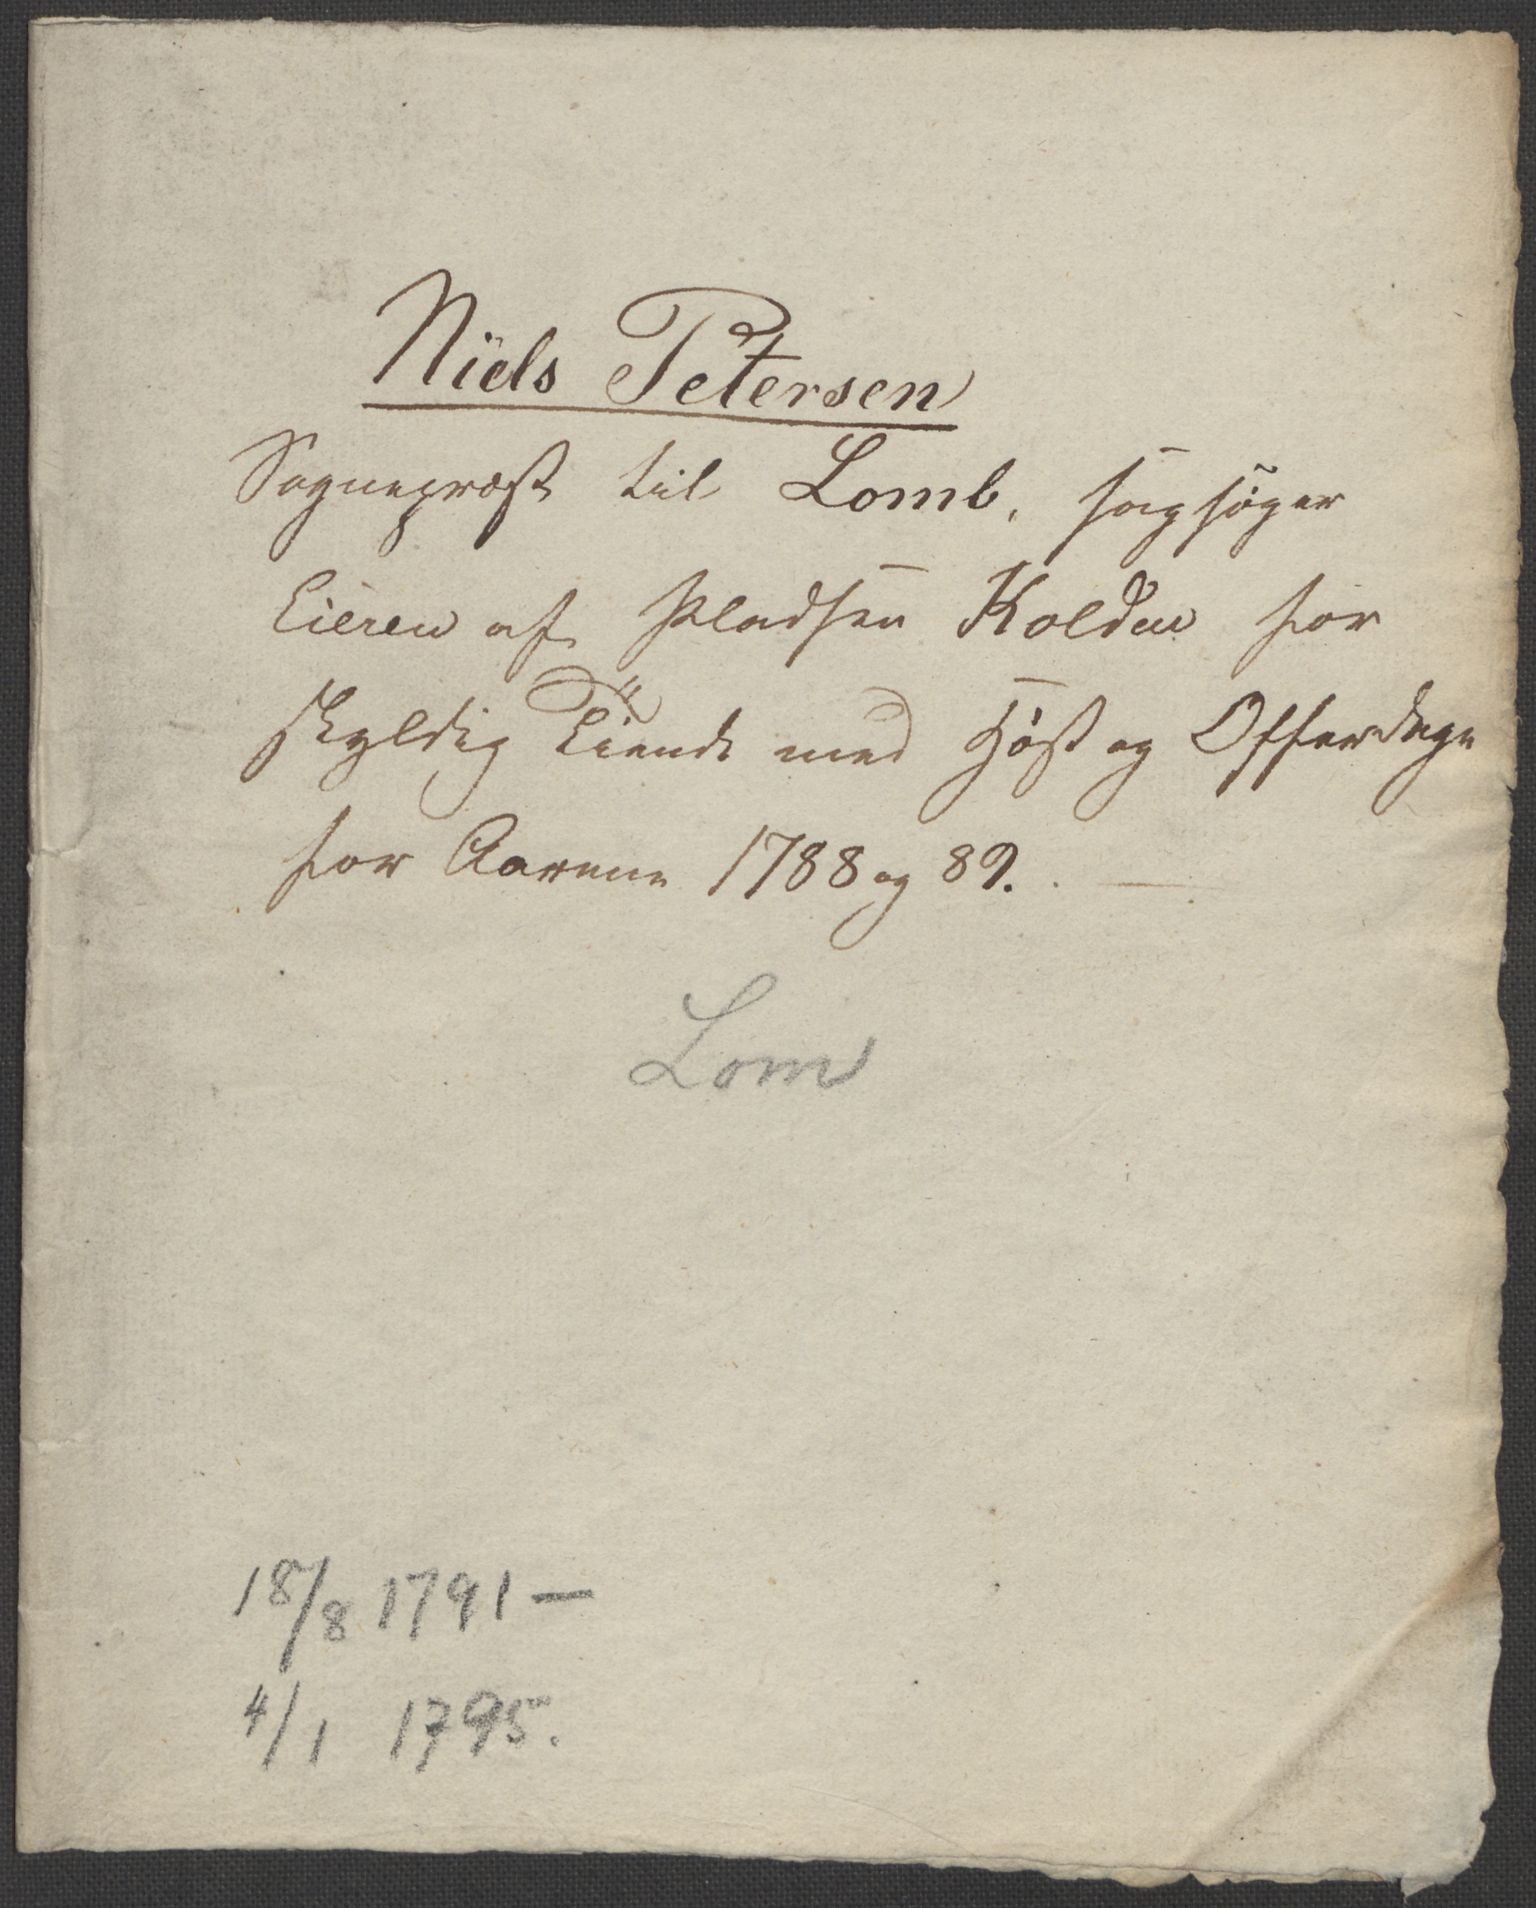 Niels Petersen
Sognepræst til Lomb, sagsöger
Eieren af Pladsen Kolden for
skyldig Tiende med Höst og Offerdage
for Aarene 1788 og 89.
Lom
18/8 1791 —
4/1 1795.